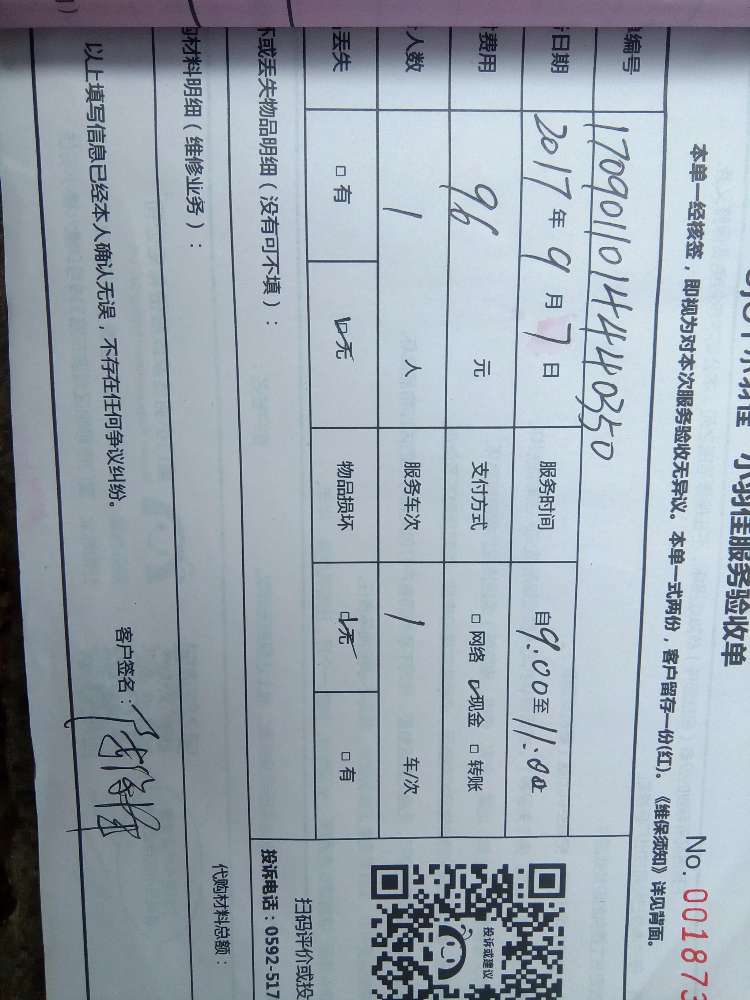 小羽佳服务验收单
No. 001873
本单一经核签，即视为对本次服务验收无异议。本单一式两份，客户留存一份(红)。《维保须知》详见背面。
编号 1709011014440350
日期 2017年9月7日 服务时间 自9:00至11:00
费用 96 元 支付方式 □网络 ☑现金 □转账
人数 1 人 服务车次 1 车/次
丢失 □有 ☑无 物品损坏 ☑无 □有
坏或丢失物品明细（没有可不填）：
材料明细（维修业务）：
代购材料总额：
以上填写信息已经本人确认无误，不存在任何争议纠纷。
客户签名：
投诉或建议
扫码评价或投
投诉电话：0592-517